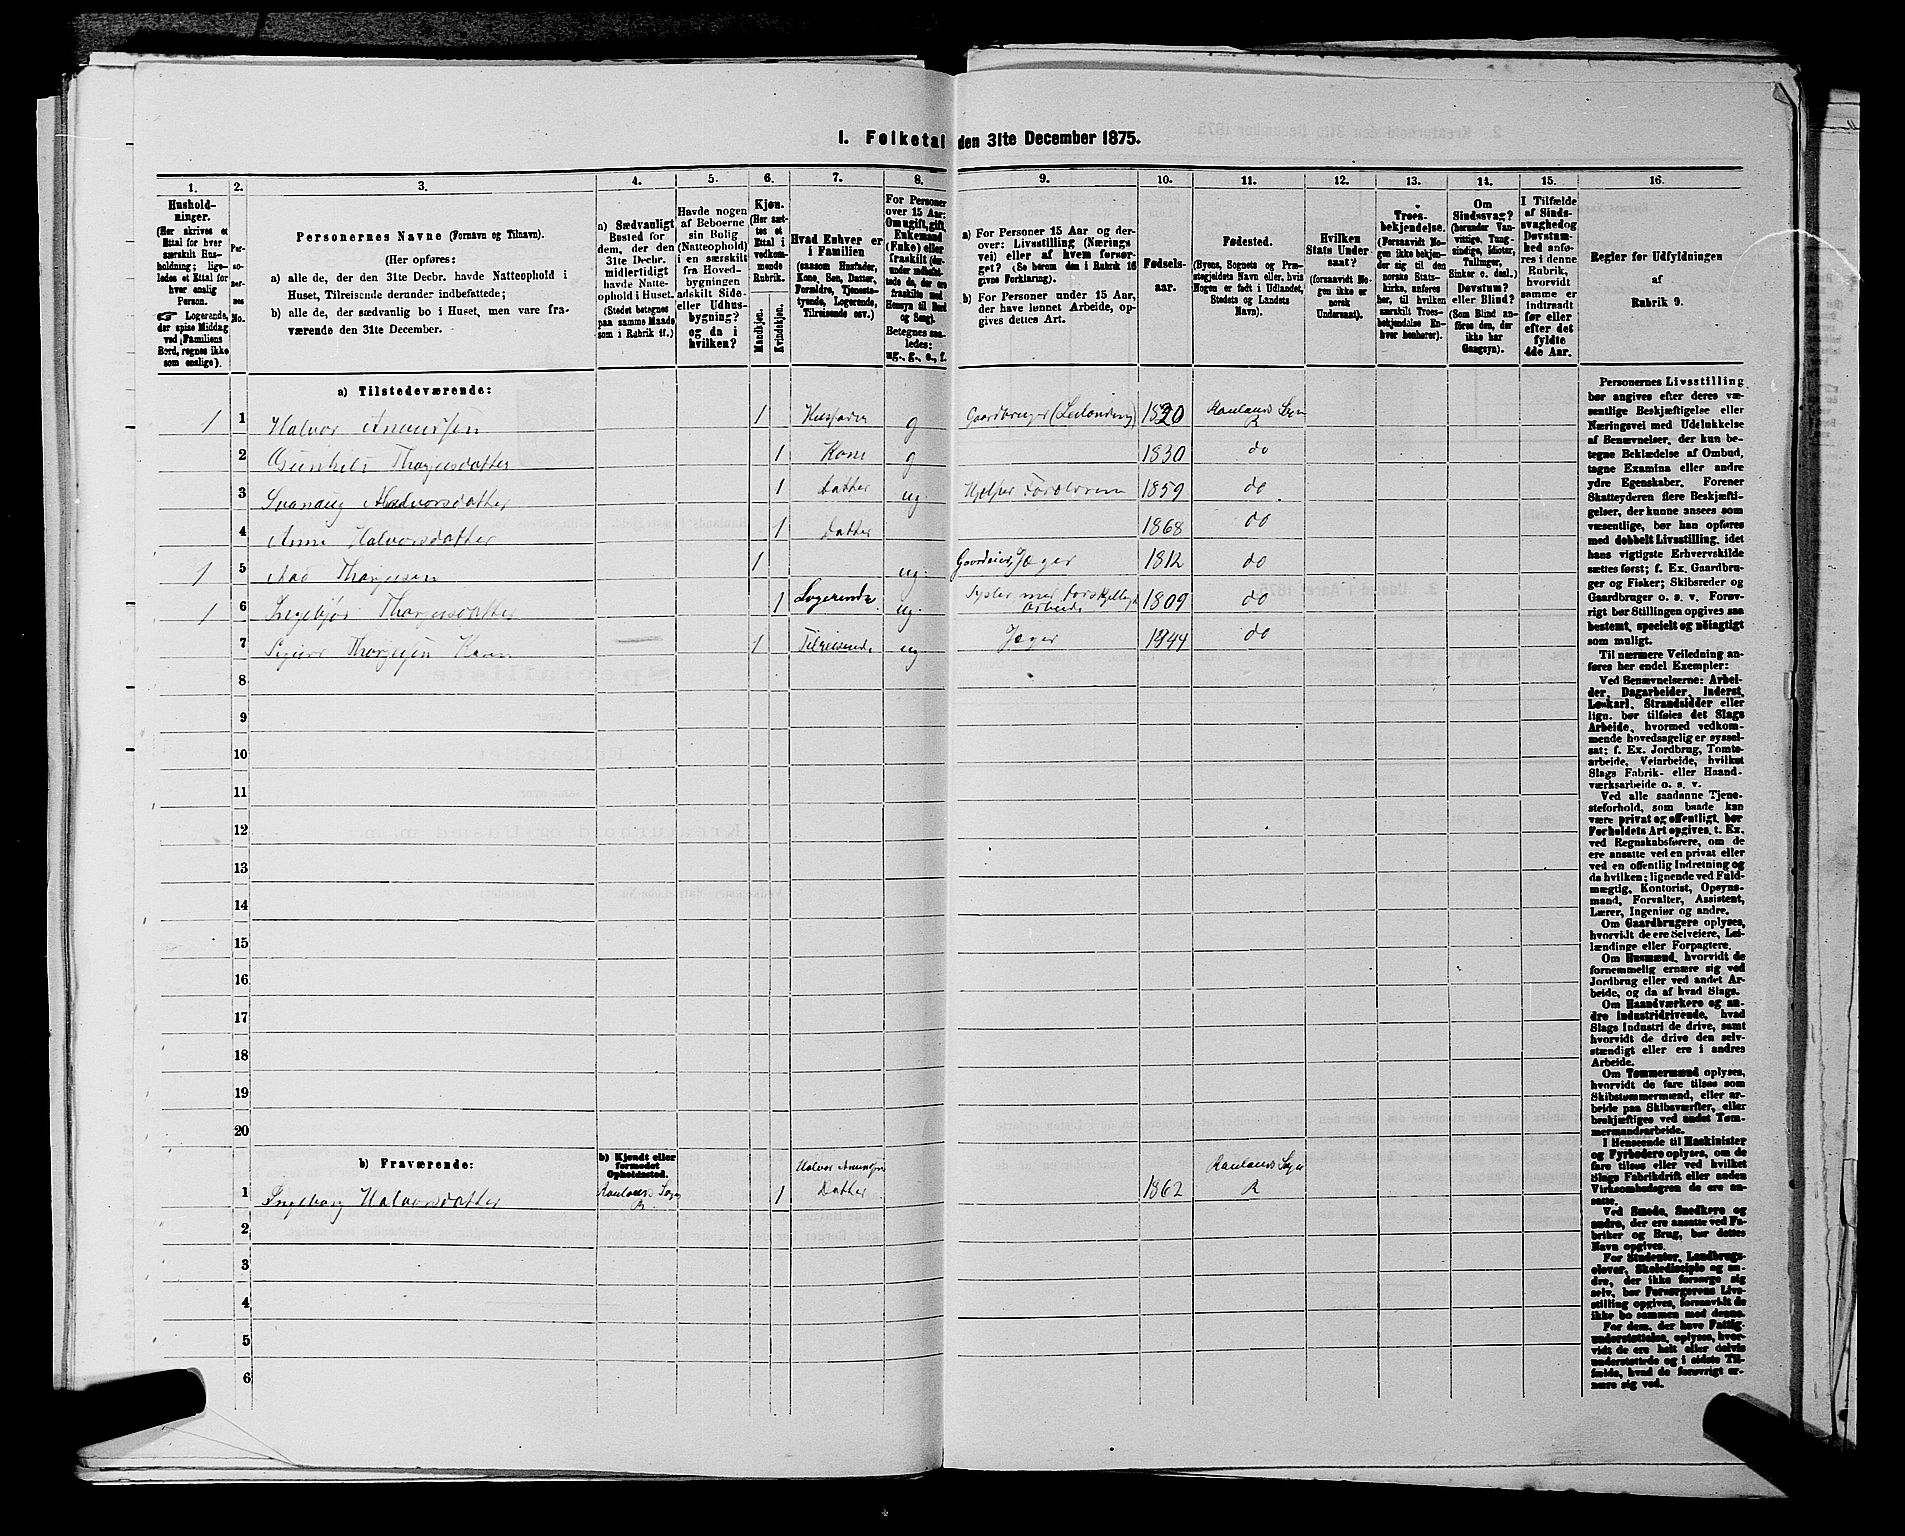 1. Folketal den 31te December 1875.
1. 2. 3. 4. 5. 6. 7. 8. 9. 10. 11. 12. 13. 14. 15. 16.
Hushold-
ninger.
(Her skrives et
Ettal for hver
særskilt Hus-
holdning; lige-
ledes et Ettal for
hver enslig
Person.
☞ Logerende,
der spise Middag
ved Familiens
Bord, regnes ikke
som enslige).
Per-
so-
ner-
nes
No.
Personernes Navne (Fornavn og Tilnavn).
(Her opføres:
a) alle de, der den 31te Decbr. havde Natteophold i
Huset, Tilreisende derunder indbefattede;
b) alle de, der sædvanlig bo i Huset, men vare fra-
værende den 31te December.
a) Sædvanligt
Bosted for
dem, der den
31te Decbr.
midlertidigt
havde Natte-
ophold i Huset.
(Stedet betegnes
paa samme Maade
som i Rubrik 11.)
Havde nogen
af Beboerne
sin Bolig
(Natteophold)
i en særskilt
fra Hoved-
bygningen
adskilt Side-
eller Udhus-
bygning?
og da i
hvilken?
Kjøn.
(Her sæt-
tes et
Ettal i
vedkom-
mende
Rubrik.
Mandkjøn.
Kvindekjøn.
Hvad Enhver er
i Familien
(saasom Husfader,
Kone, Søn, Datter,
Forældre, Tjeneste-
tyende, Logerende,
Tilreisende osv.)
For Personer
over 15 Aar:
Om ugift, gift,
Enkemand
(Enke) eller
fraskilt (der-
under indbefat-
tede de, der ere
fraskilte med
Hensyn til Bord
og Seng).
Betegnes saa-
ledes:
ug., g., e., f.
a) For Personer 15 Aar og der-
over: Livsstilling (Nærings-
vei) eller af hvem forsør-
get? (Se herom den i Rubrik 16
givne Forklaring).
b) For Personer under 15 Aar,
der have lønnet Arbeide, op-
gives dettes Art.
Fødsels-
aar.
Fødested.
(Byens, Sognets og Præ-
stegjeldets Navn eller, hvis
Nogen er født i Udlandet,
Stedets og Landets
Navn).
Hvilken
Stats Under-
saat?
(forsaavidt No-
gen ikke er
norsk
Undersaat).
Troes-
bekjendelse.
(Forsaavidt No-
gen ikke bekjen-
der sig til den
norske Stats-
kirke, anføres
her, til hvilken
særskilt Troes-
bekjendelse En-
hver henhører).
Om
Sindssvag?
(herunder Van-
vittige, Tung-
sindige, Idioter,
Tullinger,
Sinker o. desl.)
Døvstum?
eller Blind?
(Som Blind an-
føres den, der
ikke har
Gangsyn).
I Tilfælde
af Sinds-
svaghed og
Døvstum-
hed anfø-
res i denne
Rubrik,
hvorvidt
samme er
indtraadt
før eller
efter det
fyldte
4de Aar.
Regler for Udfyldningen
af
Rubrik 9.
a) Tilstedeværende:
1 1 Halvor Anundsen 1 Husfader g Gaardbruger (Leilænding) 1820 Raulands Sogn R
2 Gunhild Thorgersdatter 1 Kone g 1830 do
3 Svanaug Halvorsdatter 1 Datter ug. Hjelper Forældrene 1859 do
4 Anne Halvorsdatter 1 Datter 1868 do
1 5 Aad Thorgersen 1 ug. Jæger 1812 do
1 6 Ingebjør Thorgersdatter 1 Logerende ug. Sysler med forskjelligt Arbeide 1809 do
7 Thorgersen 1 Tilreisende ug Jæger 1844 do
8
9
10
11
12
13
14
15
16
17
18
19
20
b) Fraværende:
b) Kjendt eller
formodet
Opholdssted.
Halvor Anundsen
1 Ingeborg Halvorsdatter Raulands Sogn R. 1 Datter 1862 Raulands Sogn R
2
3
4
5
6
Personernes Livsstilling
bør angives efter deres væ-
sentlige Beskjæftigelse eller
Næringsvei med Udelukkelse
af Benævnelser, der kun be-
tegne Beklædelse af Ombud,
tagne Examina eller andre
ydre Egenskaber. Forener
Skatteyderen flere Beskjæfti-
gelser, der kunne ansees som
væsentlige, bør han opføres
med dobbelt Livsstilling, idet
hans vigtigste Erhvervskilde
sættes først; f. Ex. Gaardbru-
ger og Fisker; Skibsreder og
Gaardbruger o. s. v. Forøv-
rigt bør Stillingen opgives saa
bestemt, specielt og nøiagtigt
som muligt.
Til nærmere Veiledning an-
føres her endel Exempler:
Ved Benævnelserne: Arbei-
der, Dagarbeider, Inderst,
Løskarl, Strandsidder eller
lign. bør tilføies det Slags
Arbeide, hvormed vedkom-
mende hovedsagelig er syssel-
sat; f. Ex. Jordbrug, Tomte-
arbeide, Veiarbeide, hvilket
Slags Fabrik- eller Haand-
værksarbeide o. s. v.
Ved alle saadanne Tjene-
steforhold, som baade kan
være privat og offentligt, bør
Forholdets Art opgives, t. Ex.
ved Regnskabsførere, om de
ere ansatte ved en privat eller
ved en offentlig Indretning og
da hvilken; lignende ved Fuld-
mægtig, Kontorist, Opsyns-
mand, Forvalter, Assistent,
Lærer, Ingeniør og andre.
Om Gaardbrugere oplyses,
hvorvidt de ere Selveiere, Lei-
lændinge eller Forpagtere.
Om Husmænd, hvorvidt de
fornemmelig ernære sig ved
Jordbrug eller ved andet Ar-
beide, og da af hvad Slags.
Om Haandværkere og an-
dre Industridrivende, hvad
Slags Industri de drive, samt
hvorvidt de drive den selv-
stændigt eller ere i andres
Arbeide.
Om Tømmermænd oplyses,
hvorvidt de fare tilsøs som
Skibstømmermænd, eller ar-
beide paa Skibsværfter, eller
beskjæftiges ved andet Tøm-
mermandsarbeide.
I Henseende til Maskinister
og Fyrbødere oplyses, om de
fare tilsøs eller ved hvilket
Slags Fabrikdrift eller anden
Virksomhedsgren de ere an-
satte.
Ved Smede, Snedkere og
andre, der ere ansatte ved Fa-
briker og Brug, bør dettes
Navn opgives.
For Studenter, Landbrugs-
elever, Skoledisciple og an-
dre, der ikke forsørge sig
selv, bør Forsørgerens Livs-
stilling opgives, forsaavidt de
ikke bo sammen med denne.
For dem, der have Fattig-
understøttelse, oplyses, hvor-
vidt de ere helt eller delvis
understøttede og i sidste Til-
fælde, hvad de forøvrigt er-
nære sig ved.